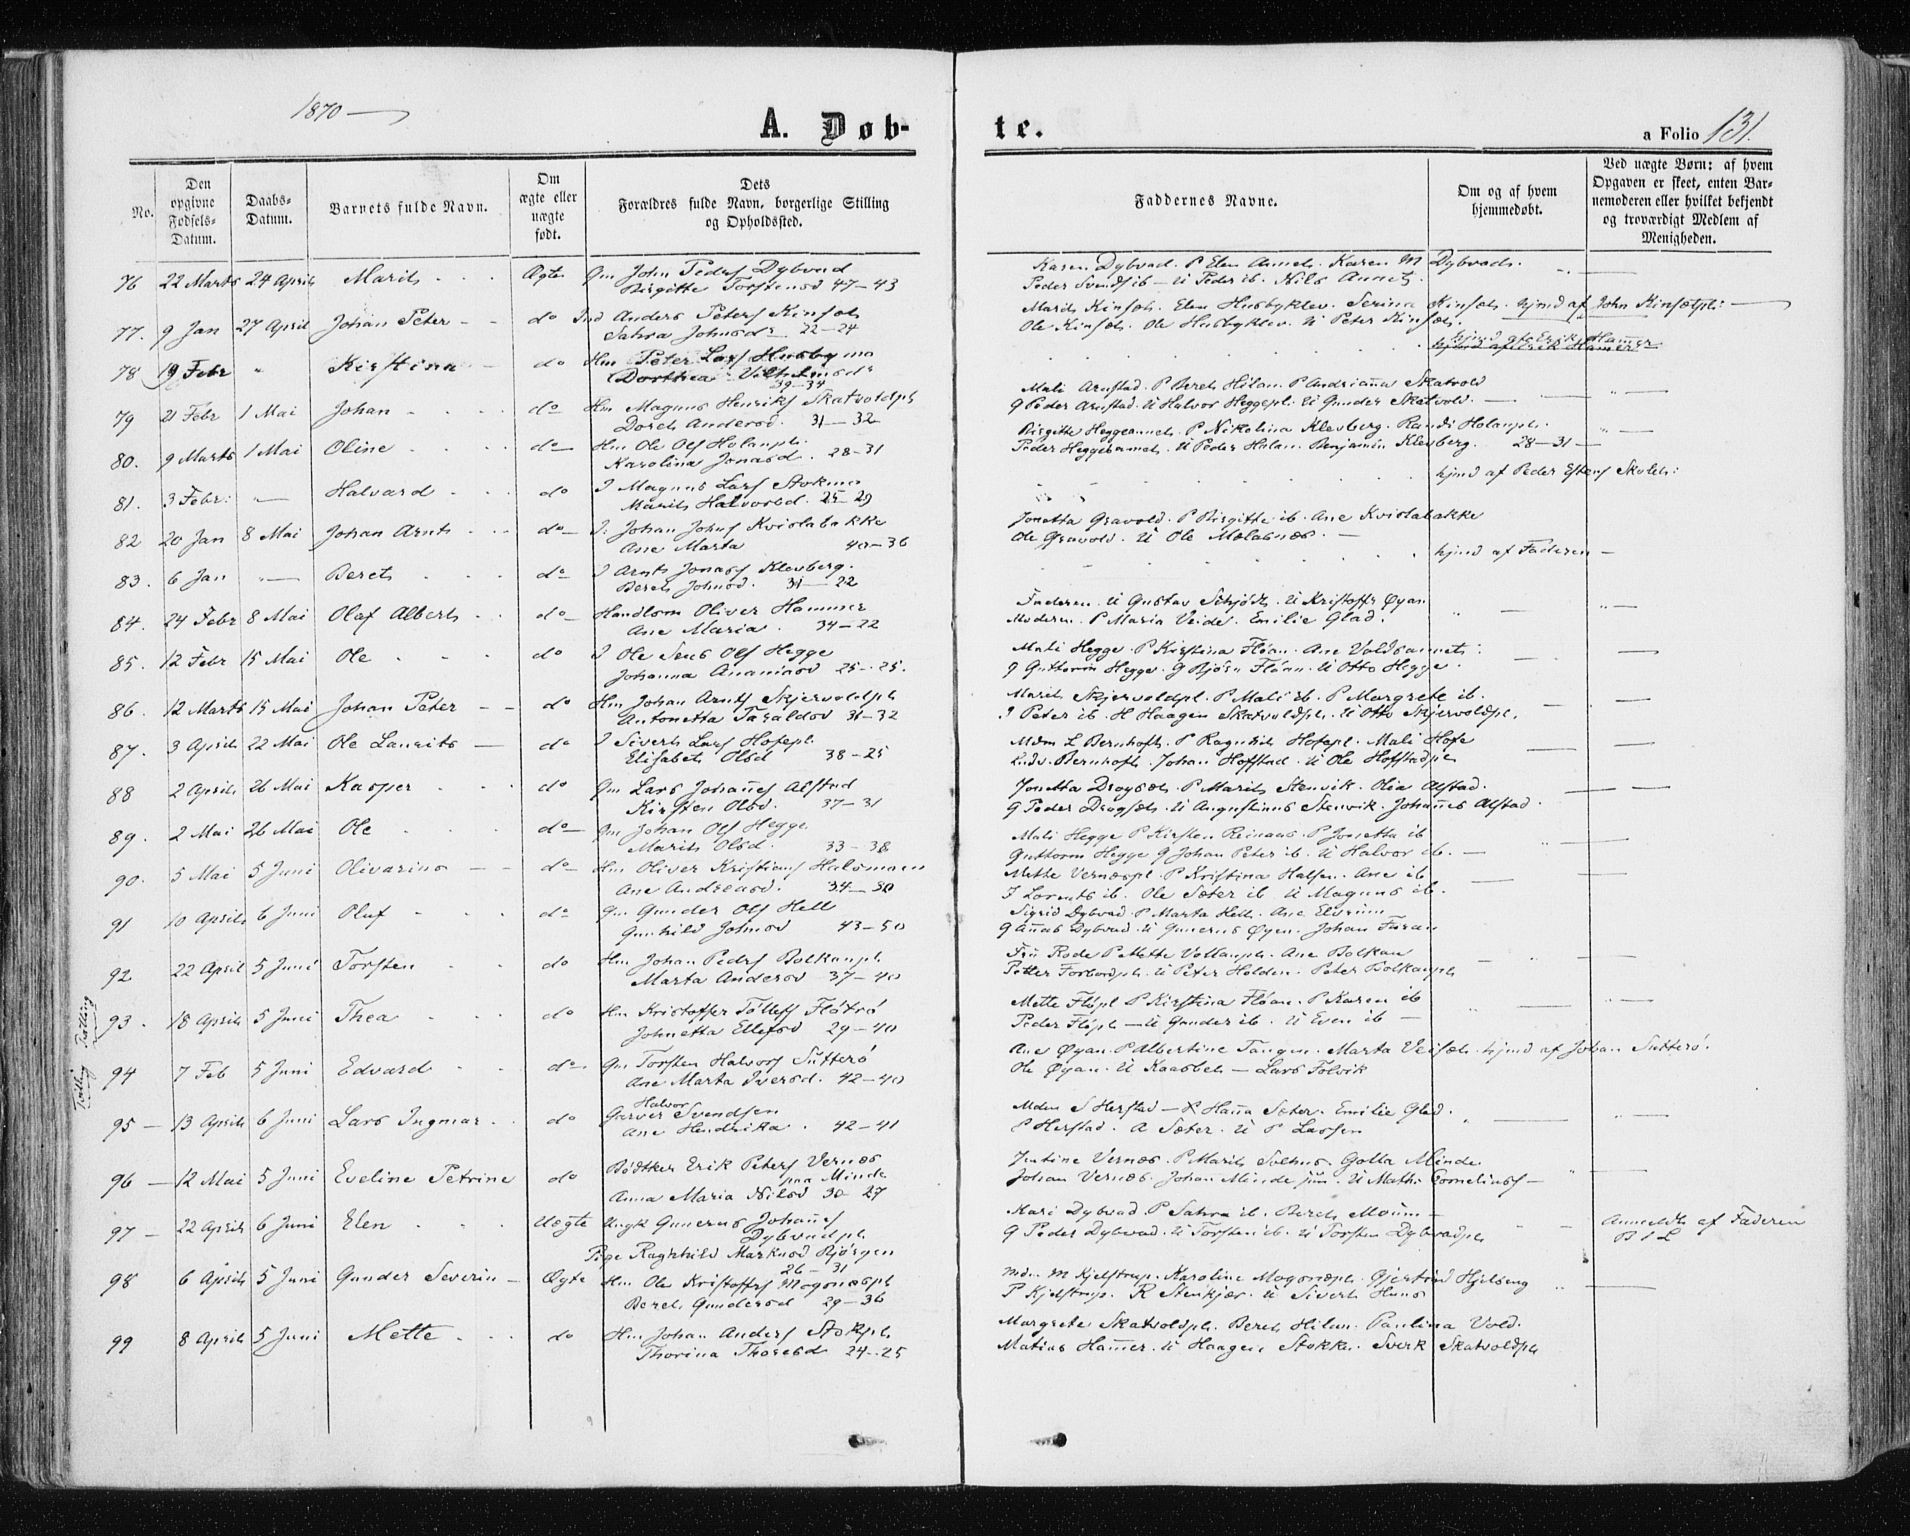 1870
A. Døb-
te.
a Folio 131.
No.
Den opgivne Fødsels-Datum.
Daabs-Datum.
Barnets fulde Navn.
Om ægte eller uægte født.
Dets Forældres fulde Navn, borgerlige Stilling og Opholdssted.
Faddernes Navne.
Om og af hvem hjemmedøbt.
Ved uægte Børn: af hvem Opgaven er skeet, enten Barnemoderen eller hvilket bekjendt og troværdigt Medlem af Menigheden.
76 22 Marts 24 April Marit Ægte Gm John Peders Dybvad
Birgitte Torstensd 47-43
Karen Dybvad. P Elen Annet. Karen M Dybvads.
Peder Svends ib - U Peder ib. Nils Annet.
77. 9 Jan 27 April Johan Peter do Ind Anders Peters Kinset
Sahra Johnsdr 22-24
Marit Kinset. Elen Husbyklev. Serina Kinset. hjmd af John Kinsetpl.
Ole Kinset. Ole Husbyklev. U Peter Kinset.
78 19 Febr " Kirstina do Hm Peter Lars Husbymo
Dorthea Vilhelmsdr
39-34
hjmd af Erik Hammer
79 21 Febr 1 Mai Johan do Hm Magnus Henriks Skatvoldpl
Doret Andersd. 31-32
Mali Arnstad. P Beret Hilan. P Andrianna Skatvold
G Peder Arnstad. U Halvor Heggepl. U Gunder Skatvold.
80. 9 Marts 1 Mai Oline do Hm Ole Ols Holanpl.
Karolina Jonasd. 28-31
Birgitte Heggeannet. P Nikolina Klevberg. Randi Holanpl.
Peder Heggeannet. U Peder Holan. Benjamin Klevberg. 28-31
81. 3 Febr. Halvard do I Magnus Lars Stokmo
Marit Halvorsd. 25-29
hjmd af Peder Estens Skolel:
82 20 Jan 8 Mai Johan Arnt do I. Johan Johns Kvislabakke
Ane Marta 40-36
Jonetta Gravold. P Birgitte ib. Ane Kvislabakke
Ole Gravold. U Ole Mælasnes.
83. 6 Jan Beret do I Arnt Jonass Klevberg.
Beret Johnsd. 31-22
hjmd af Faderen
84. 24 Febr 8 Mai Olaf Albert do Handlsm Oliver Hammer
Ane Maria. 34-22
Faderen. U Gustav Schjødt. U Kristoffr Øyan
Moderen. P Maria Veide. Emilie Glad.
85. 12 Febr 15 Mai Ole do I Ole Sens Ols Hegge
Johanna Ananiasd 25-25.
Mali Hegge. P Kirstina Fløan. Ane Voldsannet.
G Guttorm Hegge. G Bjørn Fløan. U Otto Hegge.
86. 12 Marts 15 Mai Johan Peter do Hm Johan Arnts Skjervoldpl
Antonetta Taraldsd 31-32
Marit Skjervoldpl. P Mali ib. P Margrete ib.
I Peter ib. H Haagen Skatvoldpl. U Otto Skjervoldpl.
87. 3 April 22 Mai Ole Laurits do I Sivert Lars Hofepl.
Elisabet Olsd 38-25
Mdm L Bernhoft. P Ragnhil Hofepl. Mali Hofe
Ludv. Bernhoft. Johan Hoffstad. U Ole Hofstadpl
88 2 April 26 Mai Kasper do Gm Lars Johannes Alstad
Kirsten Olsd. 37-31
Jonetta Drogset. P Marit Stenvik. Olia Alstad.
G Peder Drogset. U Augustinus Stenvik. Johannes Alstad.
89. 2 Mai 26 Mai Ole do Gm Johan Ols Hegge
Marit Olsd. 33-38
Mali Hegge P Kirsten Reinaas. P Jonetta ib
Guttorm Hegge G Johan Peter ib. U Halvor ib.
90. 5 Mai 5 Juni Olivarius do Hm Oliver Kristians Halsmoen
Ane Andreasd. 34-30
Mette Vernespl. P Kristina Halsen. Ane ib
I Lorents ib. Ole Sæter ib. U Magnus ib.
91 10 April 6 Juni Olaf do Gm Gunder Ols Hell
Gunhild Johnsd 43-50
Sigrid Dybvad. P Marta Hell. Ane Elvrum
G Annas Dybvad. U Gunerus Øyen. Johan Furan
92 22 April 5 Juni Torsten do Hm Johan Peders Bolkanpl
Marta Andersd 37-40
Fru Rode P Mette Vollanpl. Ane Bolkan
Petter Forbordpl. U Peter Holden. Peter Bolkanpl
Tvilling Tvilling
93. 18 April 5 Juni Thea do Hm Kristoffer Tølles Fløtrø
Johnetta Ellefsd 29-40
Mette Fløpl P Kirstina Fløan. P Karen ib
Peder Fløpl - U Gunder ib. U Even ib -
94 7 Feb 5 Juni Edvard do Gm Torsten Halvors Sutterø
Ane Marta Iversd. 42-40
Ane Øyan. P Albertine Tangen. Marta Veiset. hjmd af Johan Sutterø.
Ole Øyan. U Kaasbøl - Lars Folvik
95 13 April 6 Juni Lars Ingmar do Garver Halvor Svendsen
Ane Hendrikka. 42-41
Mdm S Herstad - P Hanna Sæter. Emilie Glad.
P Herstad. A Sæter. U P Larsen
96 12 Mai 5 Juni Eveline Petrine do Bødtker Erik Peters Vernes
paa Minde
Anna Maria Nilsd 30-27
Jentine Vernes. P Marit Solhus. Golla Minde
Johan Vernes. Johan Minde jun. U Math. Cornelius
97 22 April 6 Juni Elen Uægte Ungk Gunerus Johannes
Dybvadpl.
Pige Ragnhild Marknsd Bjørgen
26-31
Kari Dybvad P Sahra ib. Beret Moum -
G Peder Dybvad. U Torsten ib. U Torsten Dybvadpl
Anmeldt af Faderen
B 1 L
98 6 April 5 Juni Gunder Severin Ægte Hm Ole Kristoffs Mogonæspl
Beret Gundersd 29-36
Mdm M Kjelstrup. Karoline Mogonæpl. Gjertrud Hjelseng
P Kjelstrup. R Stenkjær. U Sivert Huus
99 8 April 5 Juni Mette do Hm Johan Anders Stokpl
Thorina Thoresd 24-25
Margrete Skatvoldpl. Beret Hilan. Paulina Vold.
Matias Hammer. U Haagen Stokke. Sverk Skatvoldpl